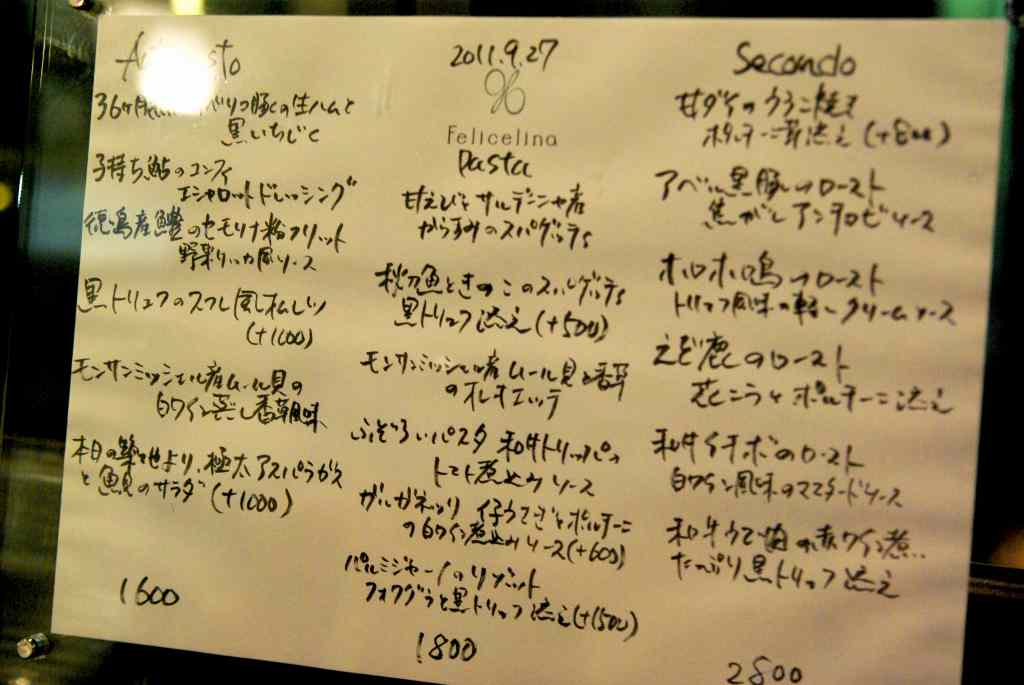 2011.9.27
Felicelina
36ヶ月 豚の生ハムと
黒いちじく
子持ち鮎のコンフィ
エシャロットドレッシング
徳島産鱧のセモリナ粉フリット
野菜 ソース
黒トリュフのスフレ風オムレツ
(+1000)
モンサンミッシェル産ムール貝の
白ワイン蒸し香草風味
本日の築地より、極太アスパラガス
と魚貝のサラダ (+1000)
1600
Pasta
甘えびとサルデーニャ産
からすみのスパゲッティ
秋刀魚ときのこのスパゲッティ
黒トリュフ添え (+500)
モンサンミッシェル産ムール貝と香草
のオレキエッテ
ふぞろいパスタ 和牛トリッパの
トマト煮込みソース
ガルガネッリ 仔うさぎとポルチーニ
の白ワイン煮込みソース (+600)
パルミジャーノのリゾット
フォワグラと黒トリュフ添え (+1500)
1800
Secondo
甘ダイのウロコ焼き
ポルチーニ茸添え (+800)
アベル黒豚のロースト
焦がしアンチョビソース
ホロホロ鳥のロースト
トリュフ風味の軽いクリームソース
えぞ鹿のロースト
花こうとポルチーニ添え
和牛イチボのロースト
白ワイン風味のマスタードソース
和牛ウデ肉の赤ワイン煮
たっぷり黒トリュフ添え
2800